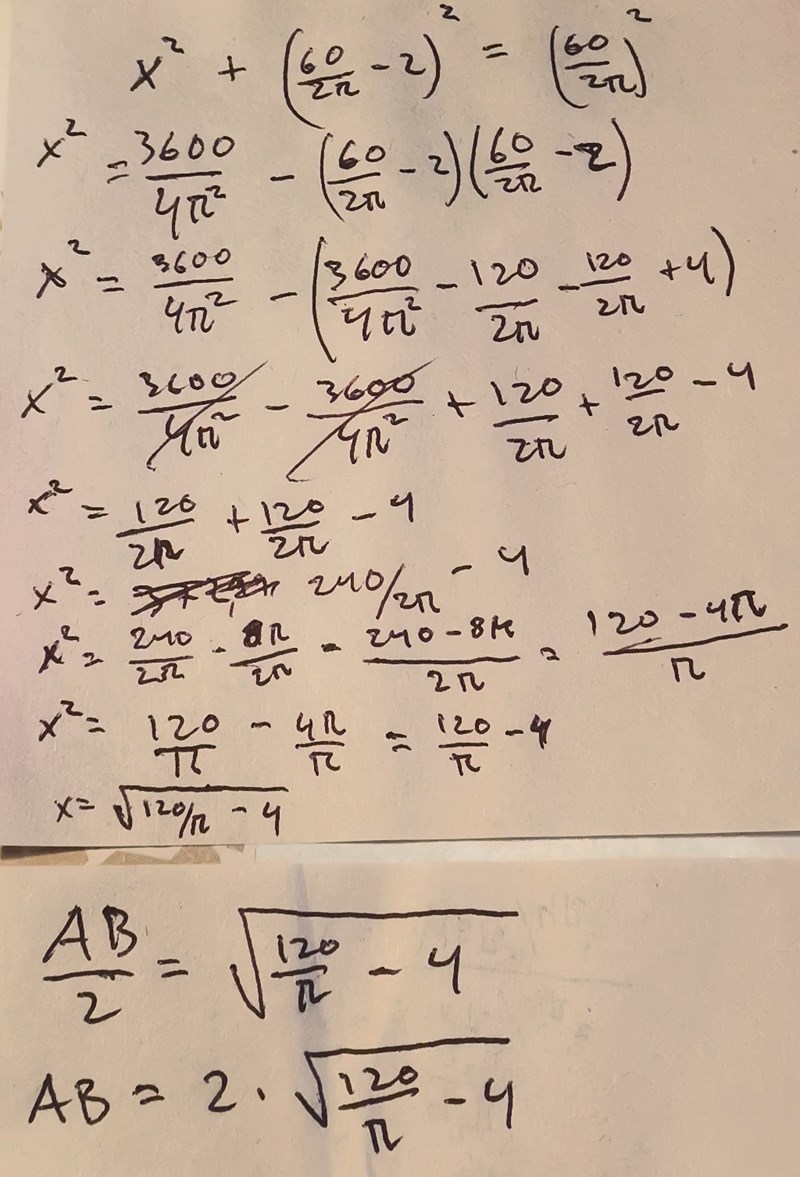 x² + (60/2π - 2)² = (60/2π)²
x² = 3600/4π² - (60/2π - 2)(60/2π - 2)
x² = 3600/4π² - (3600/4π² - 120/2π - 120/2π + 4)
x² = 3600/4π² - 3600/4π² + 120/2π + 120/2π - 4
x² = 120/2π + 120/2π - 4
x² = 240/2π - 4
x² = 240/2π - 8π/2π = 240-8π/2π = 120-4π/π
x² = 120/π - 4π/π = 120/π - 4
x = √(120/π - 4)
AB/2 = √(120/π - 4)
AB = 2 · √(120/π - 4)